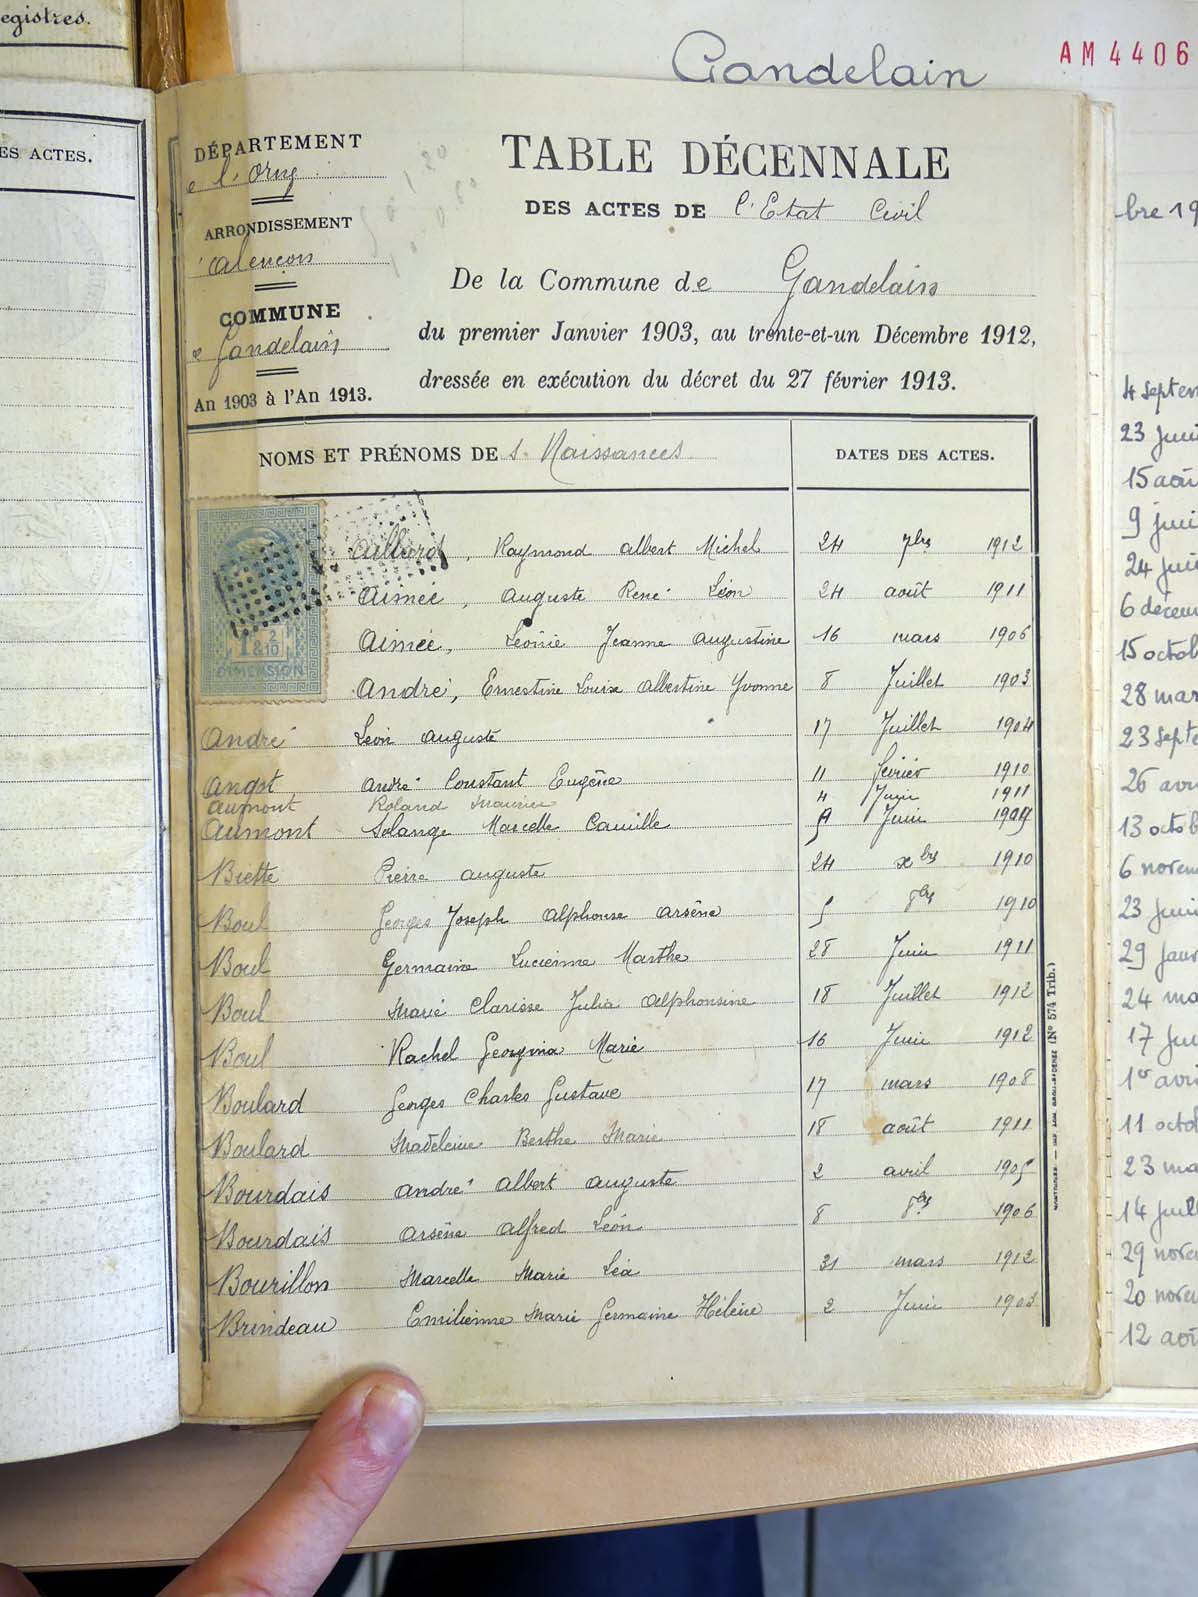 egistres.
ES ACTES.
Gandelain
AM4406
DÉPARTEMENT
e l'Orne
ARRONDISSEMENT
Alençon
COMMUNE
e Gandelain
An 1903 à l'An 1913.
TABLE DÉCENNALE
DES ACTES DE l'Etat Civil
De la Commune de Gandelain
du premier Janvier 1903, au trente-et-un Décembre 1912,
dressée en exécution du décret du 27 février 1913.
NOMS ET PRÉNOMS DE s. Naissances DATES DES ACTES.
DIMENSION
Raymond Albert Michel 24 7bre 1912
Aimée, Auguste René Léon 24 août 1911
Aimée, Léonie Jeanne Augustine 16 mars 1906
André, Ernestine Louise Albertine Yvonne 8 Juillet 1903
André Léon Auguste 17 Juillet 1904
Angot André Constant Eugène 11 février 1910
Aumont Roland Maurice 4 Juin 1911
Aumont Solange Marcelle Camille Juin 1909
Biette Pierre Auguste 24 xbre 1910
Boul Georges Joseph Alphonse Arsène 5 8bre 1910
Boul Germaine Lucienne Marthe 28 Juin 1911
Boul Marie Clarisse Julia Alphonsine 18 Juillet 1912
Boul Rachel Georgina Marie 16 Juin 1912
Boulard Georges Charles Gustave 17 mars 1908
Boulard Madeleine Berthe Marie 18 août 1911
Bourdais André Albert Auguste 2 avril 1905
Bourdais Arsène Alfred Léon 8 8bre 1906
Bourillon Marcelle Marie Léa 31 mars 1912
Brindeau Emilienne Marie Germaine Hélène 2 Juin 1903
(No 574 Trib.)
bre 19
4 septem
23 juin
15 août
9 jui
24 jui
6 décem
15 octob
28 mar
23 septe
26 avri
13 octob
6 novem
23 juin
29 janv
24 ma
17 ju
1er avri
11 octob
23 ma
14 juil
29 nove
20 novem
12 aoû